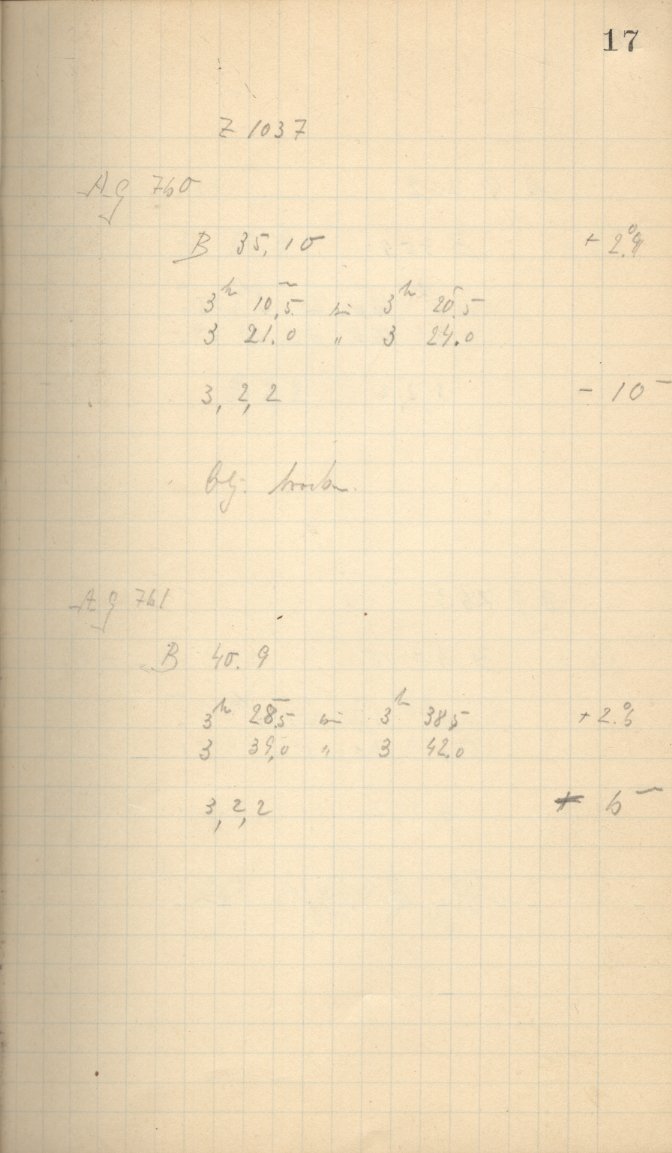 17
Z 1037
AG 760
B 35, 10 + 2.°9
3h 10,5m bis 3h 20,5
3 21.0 " 3 24.0
3, 2, 2 - 10m
AG 761
B 40. 9
3h 28,5m bis 3h 38,5 + 2.°6
3 39,0 " 3 42.0
3, 2, 2 + 6m